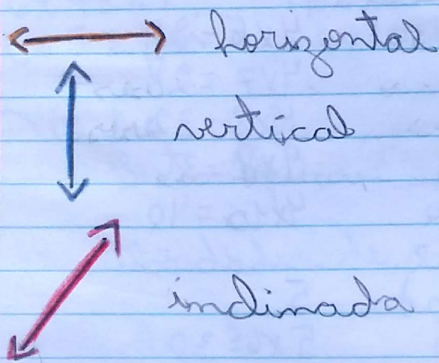 horizontal
vertical
inclinada